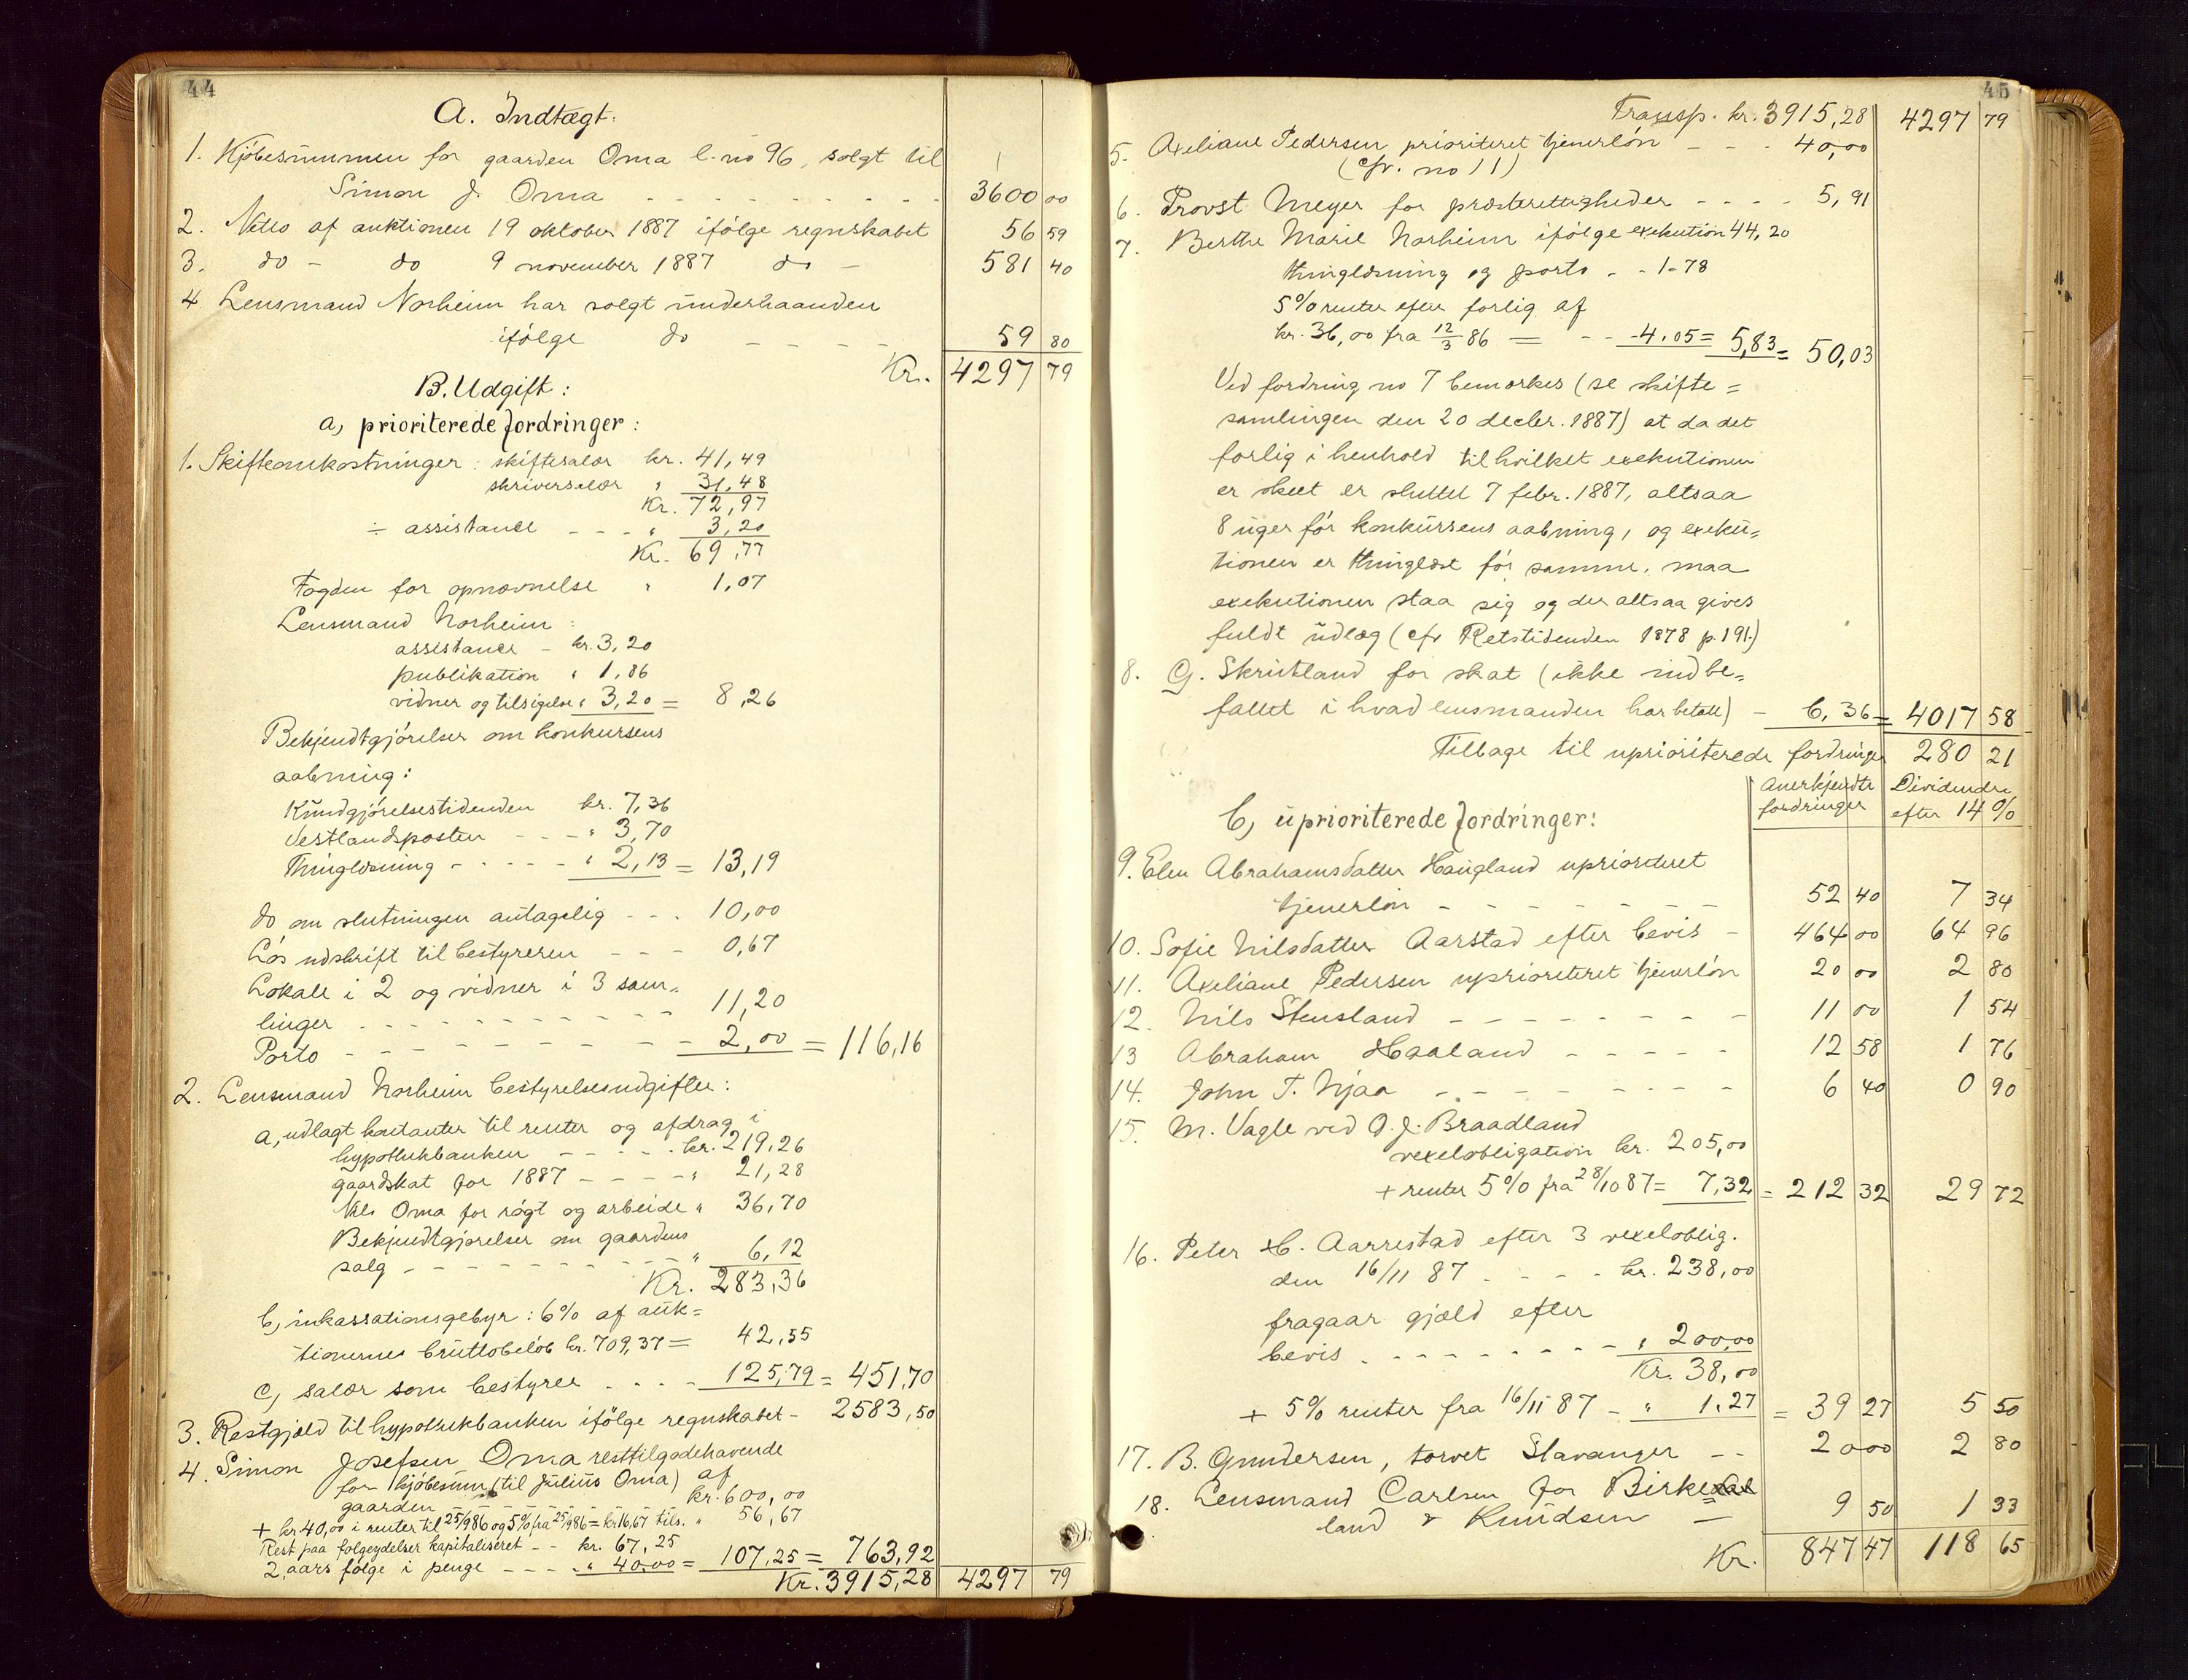 44
A. Indtægt:
1. Kjöbesummen for gaarden Oma l. no 96, solgt til
Simon J. Oma - - - - - - - - - 3600 00
2. Netto af auktionen 19 oktober 1887 ifölge regnskabet 56 59
3. do - do 9 november 1887 do - 581 40
4 Lensmand Norheim har solgt underhaanden
ifölge do - - - - 59 80
Kr. 4297 79
B. Udgift:
a, prioriterede fordringer:
1. Skifteomkostninger: skiftesalær kr. 41,49
skriversalær " 31,48
Kr. 72,97
÷ assistance - - - " 3,20
Kr. 69,77
Fogden for opnævnelse " 1,07
Lensmand Norheim:
assistance - kr. 3,20
publikation " 1,86
vidner og tilsigelse " 3,20 = 8,26
Bekjendtgjörelser om konkursens
aabning:
Kundgjörelsestidenden kr. 7,36
Vestlandsposten - - - " 3,70
Thinglæsning - - - - - " 2,13 = 13,19
do om slutningen antagelig - - - 10,00
Lös udskrift til bestyreren - - - 0,67
Lokale i 2 og vidner i 3 sam-
linger - - - - - - - - - - 11,20
Porto - - - - - - - - - 2,00 = 116,16
2. Lensmand Norheim bestyrelsesudgifter:
a, udlagt kontanter til renter og afdrag i
hypothekbanken - - - - - kr. 219,26
gaardskat for 1887 - - - - " 21,28
Nils Oma for rögt og arbeide " 36,70
Bekjendtgjörelser om gaardens
salg - - - - - - - - - " 6,12
Kr. 283,36
b, inkassationsgebyr: 6% af auk=
tionernes bruttobelöb kr. 709,37 = 42,55
c, salær som bestyrer - - - - 125,79 = 451,70
3. Restgjæld til hypothekbanken ifölge regnskabet - 2583,50
4. Simon Josefsen Oma resttilgodehavende
for kjöbesum (til Julius Oma) af
gaarden kr. 600,00
+ kr 40,00 i renter til 25/9 86 og 5% fra 25/9 86 = kr 16,67 tils. " 56,67
Rest paa folgeydelser kapitaliseret - - kr. 67,25
2 aars folge i penge - - - - " 40,00 = 107,25 = 763,92
Kr. 3915,28 4297 79
45
Transp. kr. 3915,28 4297 79
5. Axeliane Pedersen prioriteret tjenerlön - - - 40,00
(cfr. no 11)
6. Provst Meyer for præsterettigheder - - - - 5,91
7. Berthe Marie Norheim ifölge exekution 44,20
thinglæsning og porto - - 1-78
5% renter efter forlig af
kr. 36,00 fra 12/3 86 = - - 4.05 = 5,83 = 50,03
Ved fordring no 7 bemærkes (se skifte=
samlingen den 20 decbr. 1887) at da det
forlig i henhold til hvilket exekutionen
er skeet er sluttet 7 febr. 1887, altsaa
8 uger för konkursens aabning, og exeku=
tionen er thinglæst för samme, maa
exekutionen staa sig og der altsaa gives
fuldt udlæg (cfr Retstidenden 1878 p. 191.)
8. G. Skrudland for skat (ikke indbe=
fattet i hvad lensmanden har betalt) - 6,36 = 4017 58
Tilbage til uprioriterede fordringer 280 21
Anerkjendte fordringer Dividende efter 14%
b, uprioriterede fordringer:
9. Elen Abrahamsdatter Haugland uprioriteret
tjenerlön - - - - - - - 52 40 7 34
10. Sofie Nilsdatter Aarstad efter bevis - 464 00 64 96
11. Axeliane Pedersen uprioriteret tjenerlön 20 00 2 80
12. Nils Stensland - - - - - - - - 11 00 1 54
13 Abraham Haaland - - - - - 12 58 1 76
14. John T. Njaa - - - - - - - - 6 40 0 90
15. M. Vagle ved O. J. Braadland
vexelobligation kr. 205,00
+ renter 5% fra 28/10 87 = 7,32 = 212 32 29 72
16. Peter H. Aarrestad efter 3 vexeloblig.
den 16/11 87 - - - - kr. 238,00
fragaar gjæld efter
bevis - - - - - - - - - " 200,00
Kr. 38,00
+ 5% renter fra 16/11 87 - " 1,27 = 39 27 5 50
17. B. Gundersen, torvet Stavanger - - 20 00 2 80
18. Lensmand Carlsen for Birke=
land & Knudsen - 9 50 1 33
Kr. 847 47 118 65